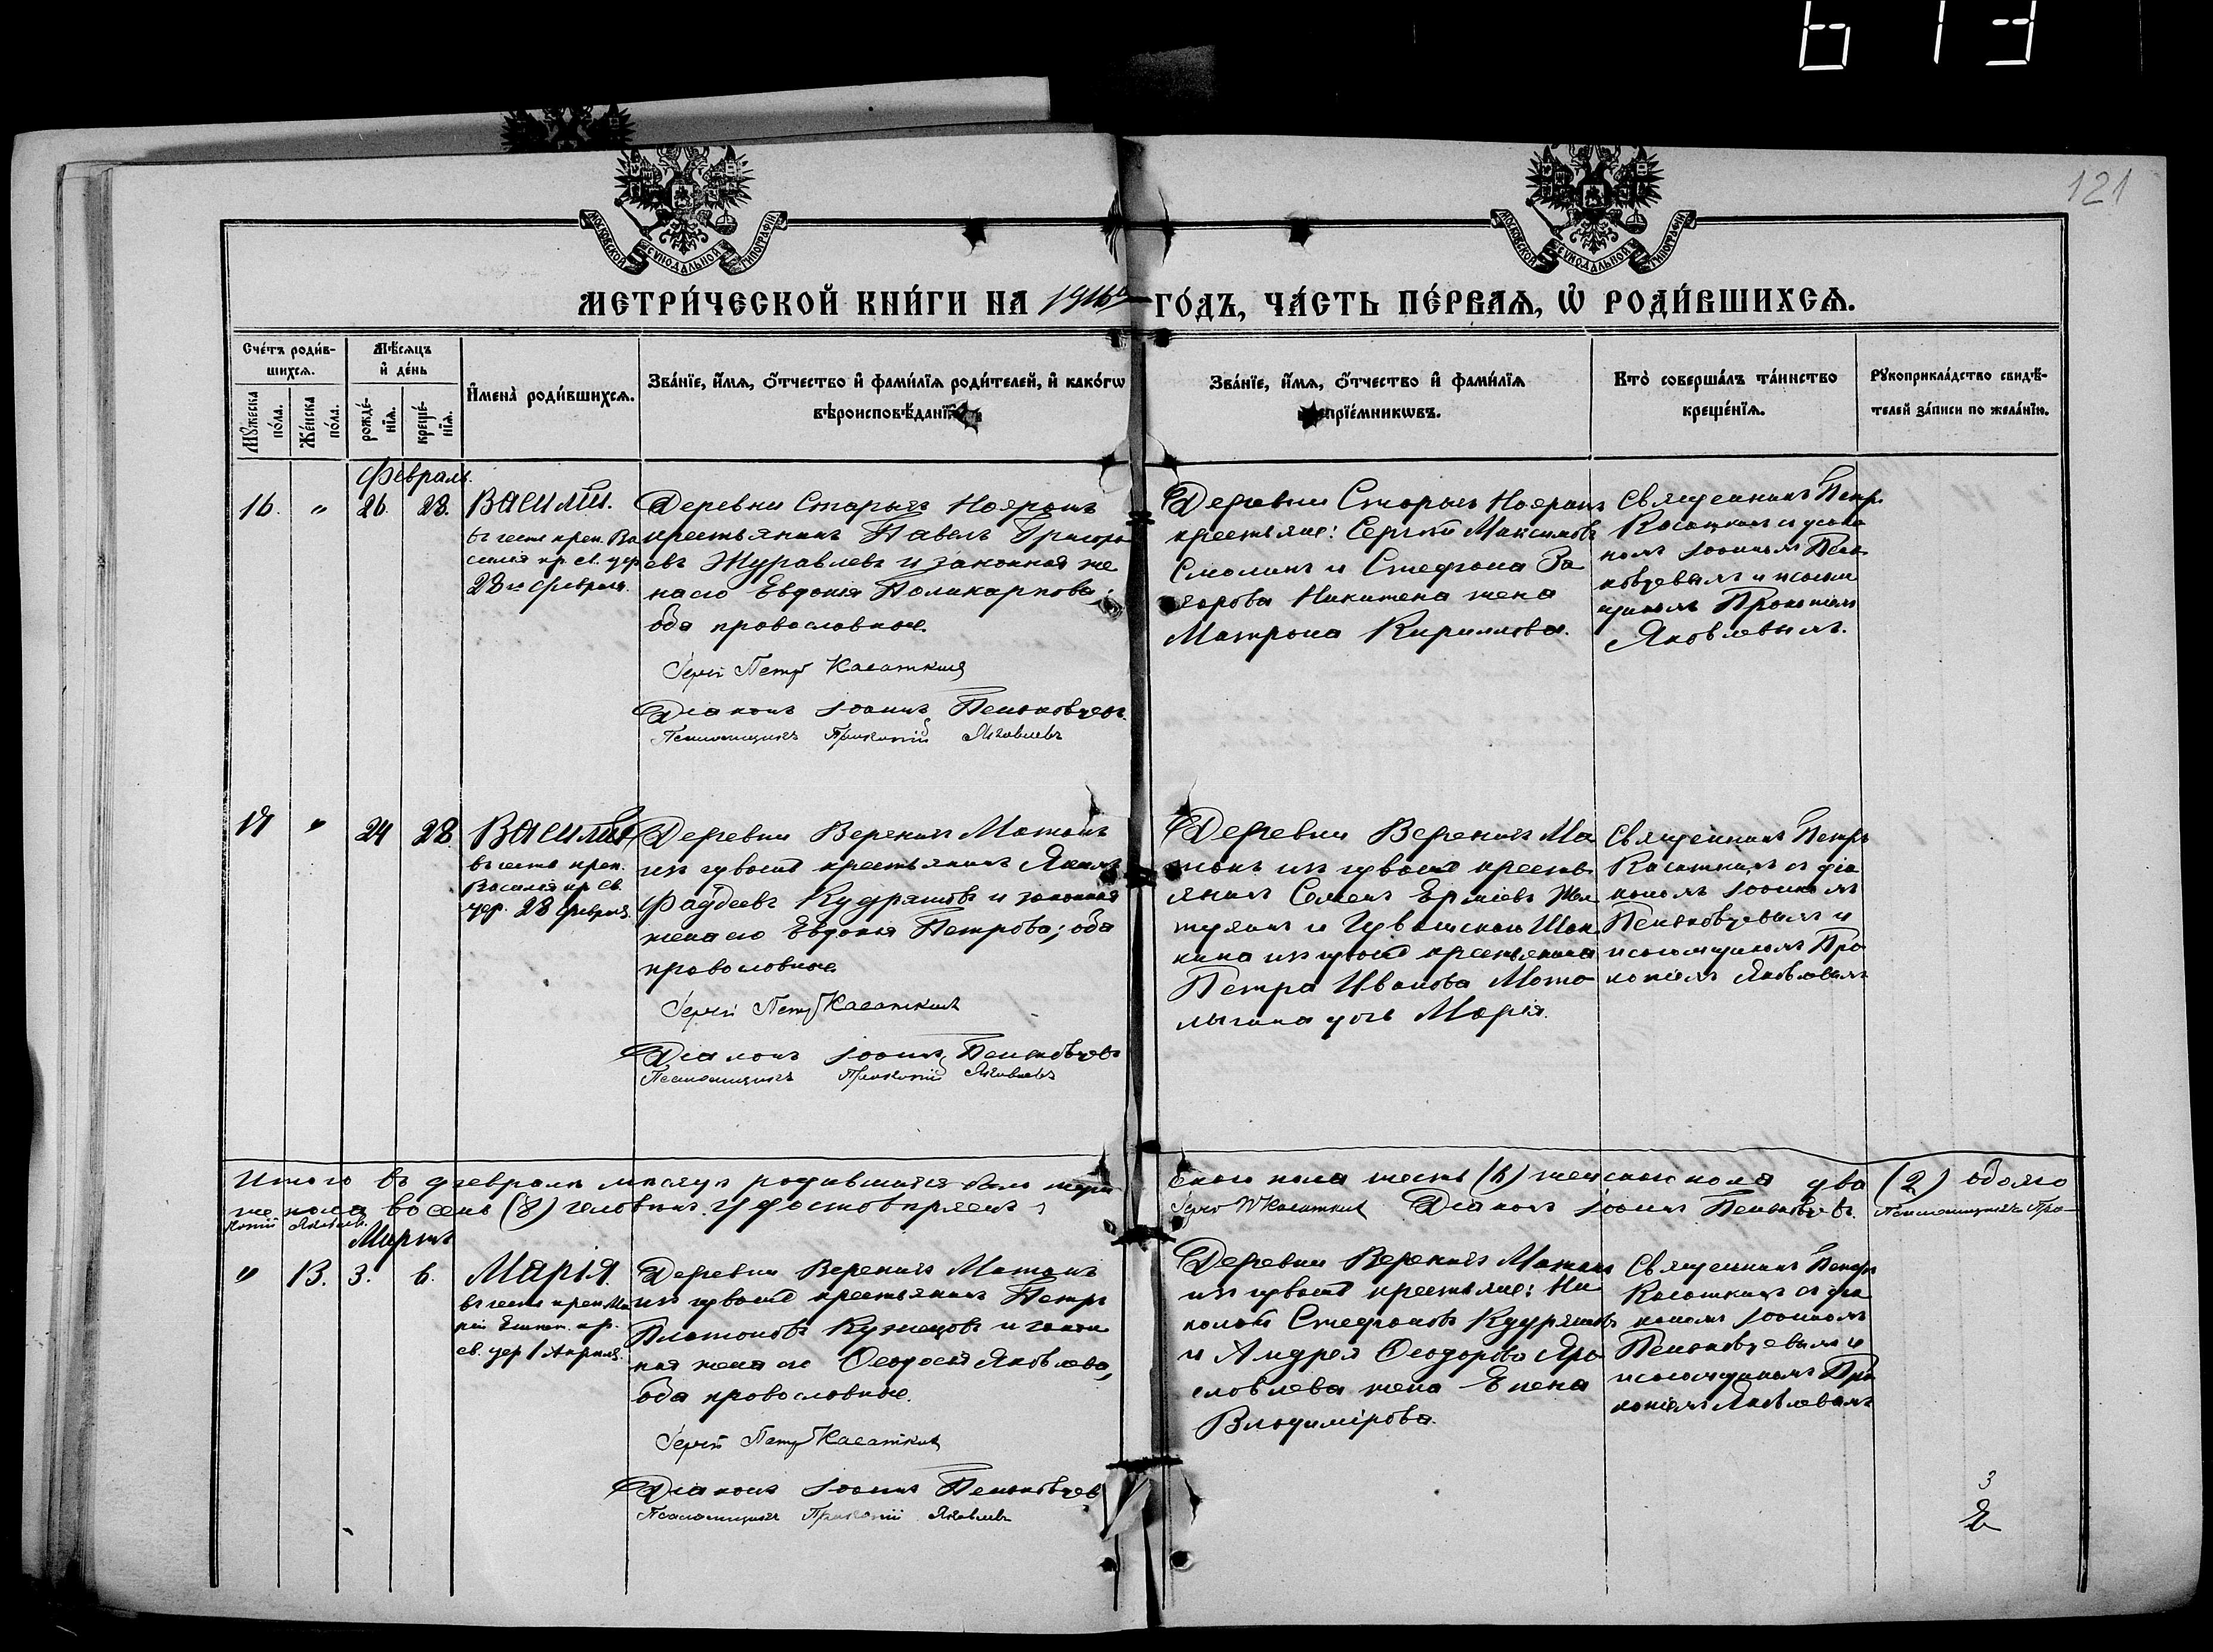 613
121
МОСКОВСКОЙ СУНОДАЛЬНОЙ ТИПОГРАФІИ
МОСКОВСКОЙ СУНОДАЛЬНОЙ ТИПОГРАФІИ
МЕТРИ́ЧЕСКОЙ КНИ́ГИ НА 1916 ГО́ДЪ, ЧА́СТЬ ПЕ́РВАѦ, Ѡ҆ РОДИ́ВШИХСѦ.
Сче́тъ роди́в-
шихсѧ.
Мѣ́сѧцъ
и҆ де́нь
Мꙋ́жеска
по́ла.
Же́нска
по́ла.
рожде́-
нїѧ.
креще́-
нїѧ.
И҆мена̀ роди́вшихсѧ.
Зва́нїе, и҆́мѧ, ѻ҆́тчество и҆ фами́лїѧ роди́телей, и҆ како́гѡ
вѣроисповѣ́данїѧ.
Зва́нїе, и҆́мѧ, ѻ҆́тчество и҆ фами́лїѧ
прїе́мникѡвъ.
Кто̀ соверша́лъ та́инство
креще́нїѧ.
Рꙋкоприкла́дство свидѣ́-
телей за́писи по жела́нїю.
Февраль.
16. " 26. 28. Василій.
въ честь преп. Ва
силія пр. св. цер
28го Февраля.
Деревни Старыхъ
крестьянинъ Павелъ Григорь
евъ Журавлевъ и законная же
на его Евдокія Поликарпова;
оба православные.
Іерей Петръ Касаткинъ
Діаконъ Іоаннъ Пеньковцевъ
Псаломщикъ Прокопій Яковлевъ
Деревни Старыхъ
крестьяне: Сергѣй Максимовъ
Смолинъ и Стефана
Никитина жена
Матрона Кириллова.
Священникъ Петръ
Касаткинъ съ діако
номъ Іоанномъ Пень
ковцевымъ и псалом
щикомъ Прокопіемъ
Яковлевымъ.
17 " 24 28 Василій
въ честь преп.
Василія пр. св.
цер. 28 Февраля.
Деревни Верхнихъ Матакъ
изъ чувашъ крестьянинъ
Фаддеевъ Кудряшовъ и законная
жена его Евдокія Петрова; оба
православные.
Іерей Петръ Касаткинъ
Діаконъ Іоаннъ Пеньковцевъ
Псаломщикъ Прокопій Яковлевъ
Деревни Верхнихъ Ма
такъ изъ чувашъ кресть
янинъ Семенъ
изъ чувашъ крестьянина
Петра Иванова
дочь Марія.
Священникъ Петръ
Касаткинъ съ діа
кономъ Іоанномъ
Пеньковцевымъ и
псаломщикомъ Про
копіемъ Яковлевымъ
Итого въ февралѣ мѣсяцѣ родившихся было муж
ского пола шесть (6) женскаго пола два (2) обоего
же пола восемь (8) человѣкъ. Удостовѣряемъ:
Іерей П Касаткинъ Діаконъ Іоаннъ Пеньковцевъ. Псаломщикъ Про-
копій Яковлевъ.
Мартъ
" 13. 3. 6. Марія.
въ честь преп. Ма
ріи Египет. пр.
св. цер 1 Апрѣля.
Деревни Верхнихъ Матакъ
изъ чувашъ крестьянинъ Петръ
Платоновъ Кузнецовъ и закон
ная жена его Ѳеодосія Яковлева,
оба православные.
Іерей Петръ Касаткинъ
Діаконъ Іоаннъ Пеньковцевъ
Псаломщикъ Прокопій Яковлевъ
Деревни Верхнихъ Матакъ
изъ чувашъ крестьяне: Ни
колай Стефановъ Кудряшовъ
и Андрея Ѳеодорова Яро
славлева жена Елена
Владимірова.
Священникъ Петръ
Касаткинъ съ діа
кономъ Іоанномъ
Пеньковцевымъ и
псаломщикомъ Про
копіемъ Яковлевымъ
3